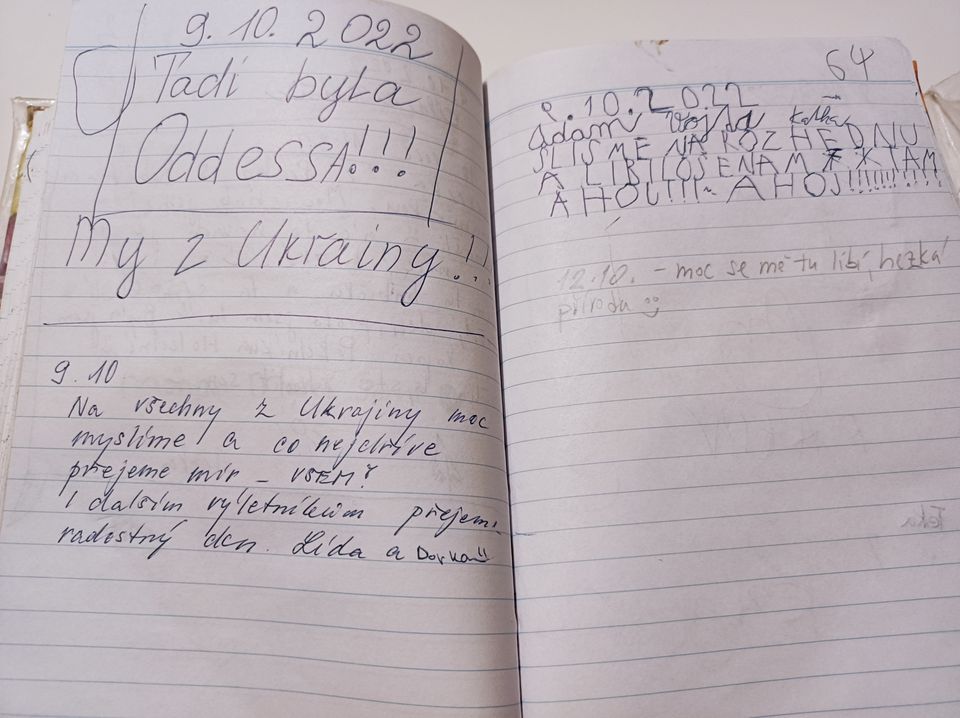 9. 10. 2022
Tadi byla
Oddessa!!!
My z Ukrainy!!!
9.10
Na všechny z Ukrajiny moc
myslíme a co nejdříve
přejeme mír – VŠEM!
I dalším výletníkům přejem
radostný den. Lída a Dorka
64
9.10.2022
Adam Vojta
ŠLI SME NA
A LIBILO SE NAM
AHOJ!!! AHOJ!!!!!!!!!
12.10. – moc se mě tu líbí, hezká
příroda